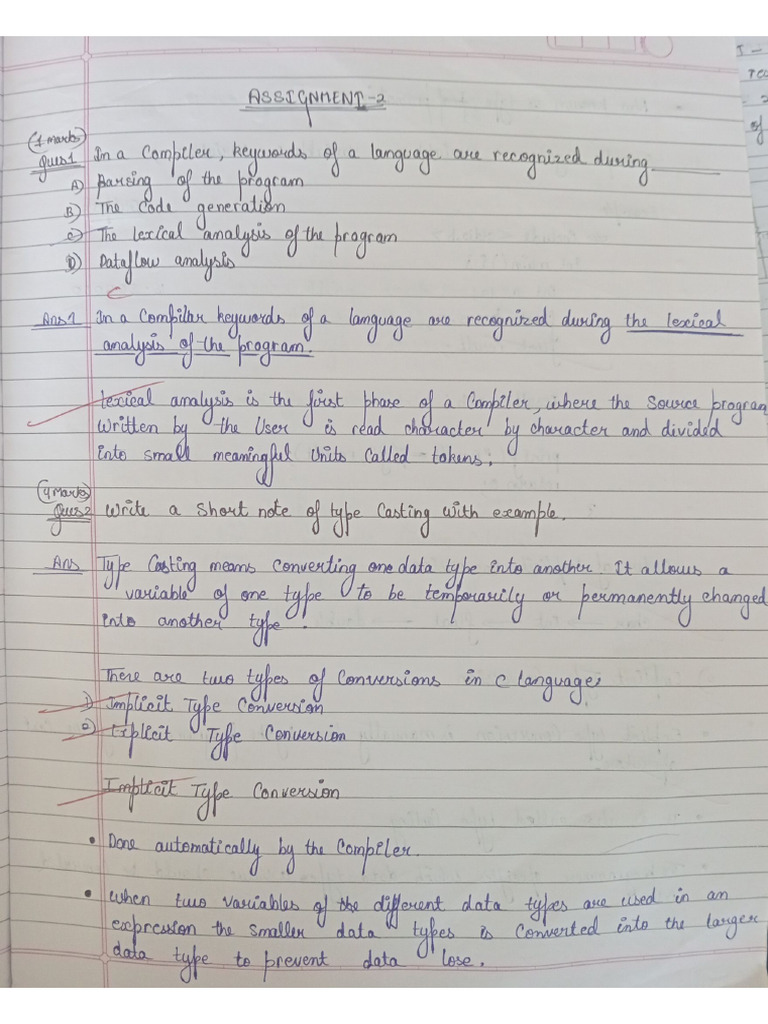 ASSIGNMENT-2
(1 marks)
Ques1 In a Compiler, keywords of a language are recognized during
A) Parsing of the program
B) The Code generation
C) The lexical analysis of the program
D) Dataflow analysis
C
Ans1 In a Compilar keywords of a language are recognized during the lexical
analysis of the program.
Lexical analysis is the first phase of a Compiler, where the Source program
written by the User is read character by character and divided
into small meaningful Units Called tokens.
(4 Marks)
Ques2 Write a Short note of type Casting with example.
Ans Type Casting means Converting one data type into another. It allows a
variable of one type to be temporarily or permanently changed
into another type.
There are two types of Conversions in C language;
1) Implicit Type Conversion
2) Explicit Type Conversion
Implicit Type Conversion
• Done automatically by the Compiler.
• When two variables of the different data types are used in an
expression the smaller data types is Converted into the larger
data type to prevent data lose.